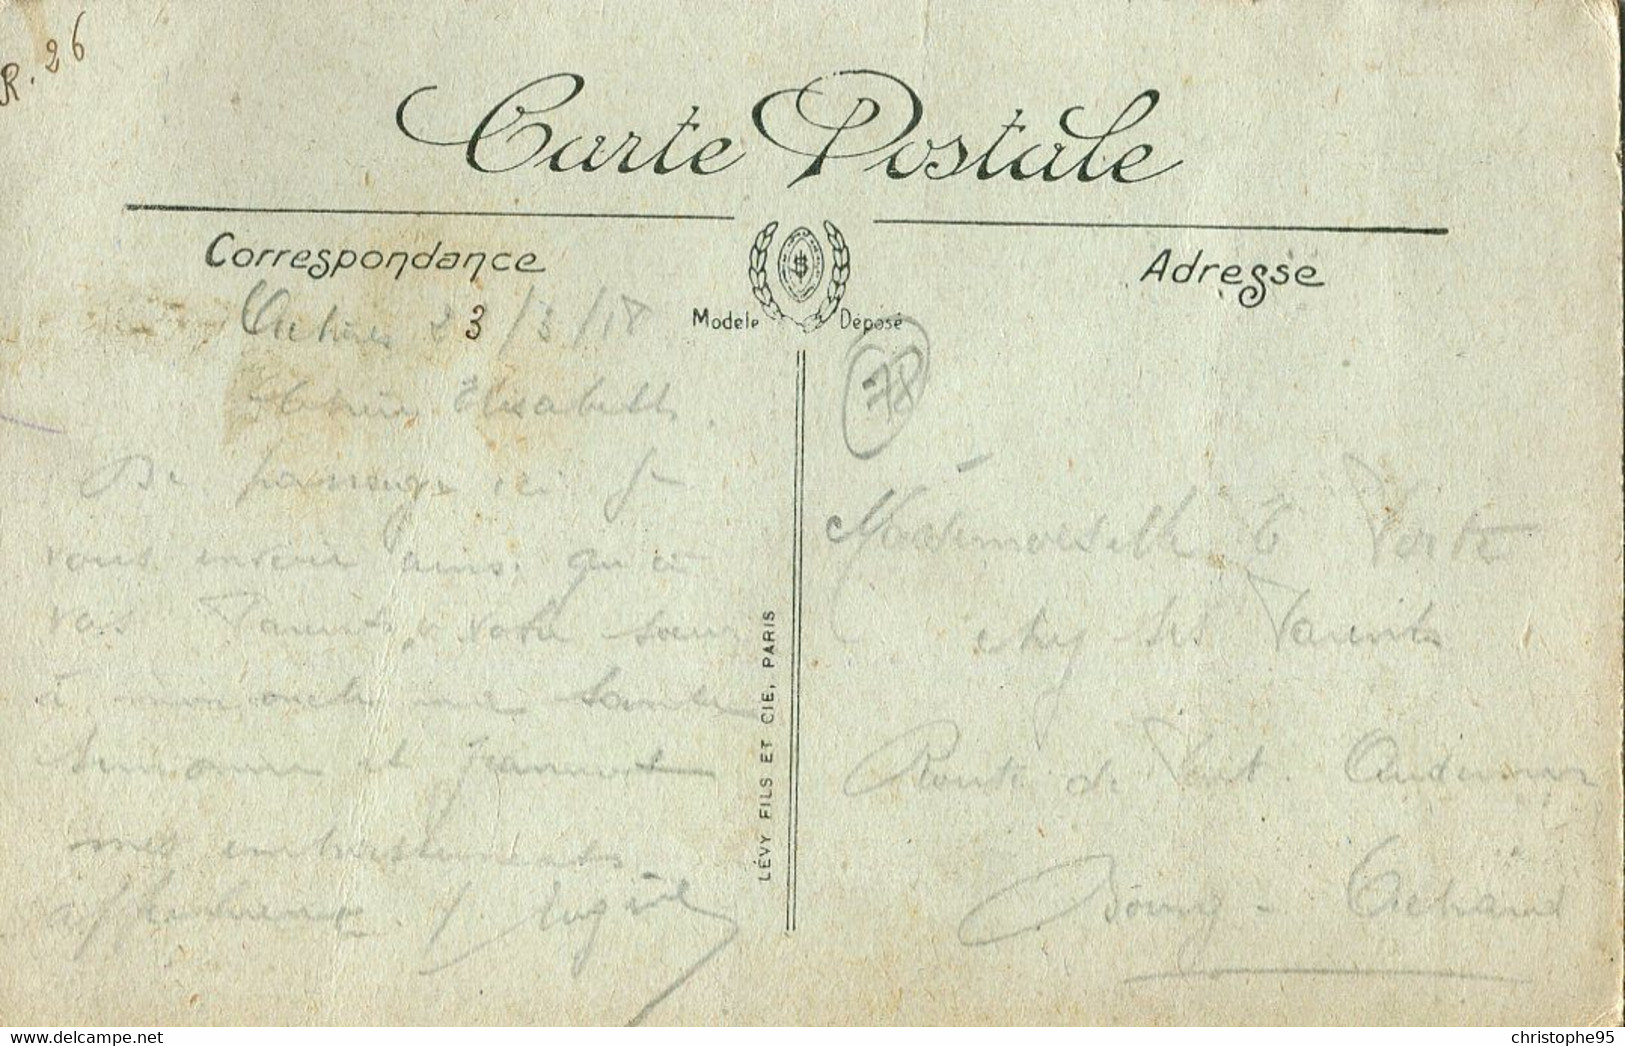 R. 26
Carte Postale
Correspondance
Achères 23/3/18
Chère Elisabeth
De passage ici je
vous envoie ainsi qu'à
vos Parents, à votre sœur
à mon oncle ma tante
Simonne et
mes embrassements
affectueux
Modèle Déposé
LÉVY FILS ET CIE, PARIS
Adresse
78
Mademoiselle E Porte
chez ses Parents
Route de Pont-Audemer
Bourg-Achard
www.delcampe.net
christophe95